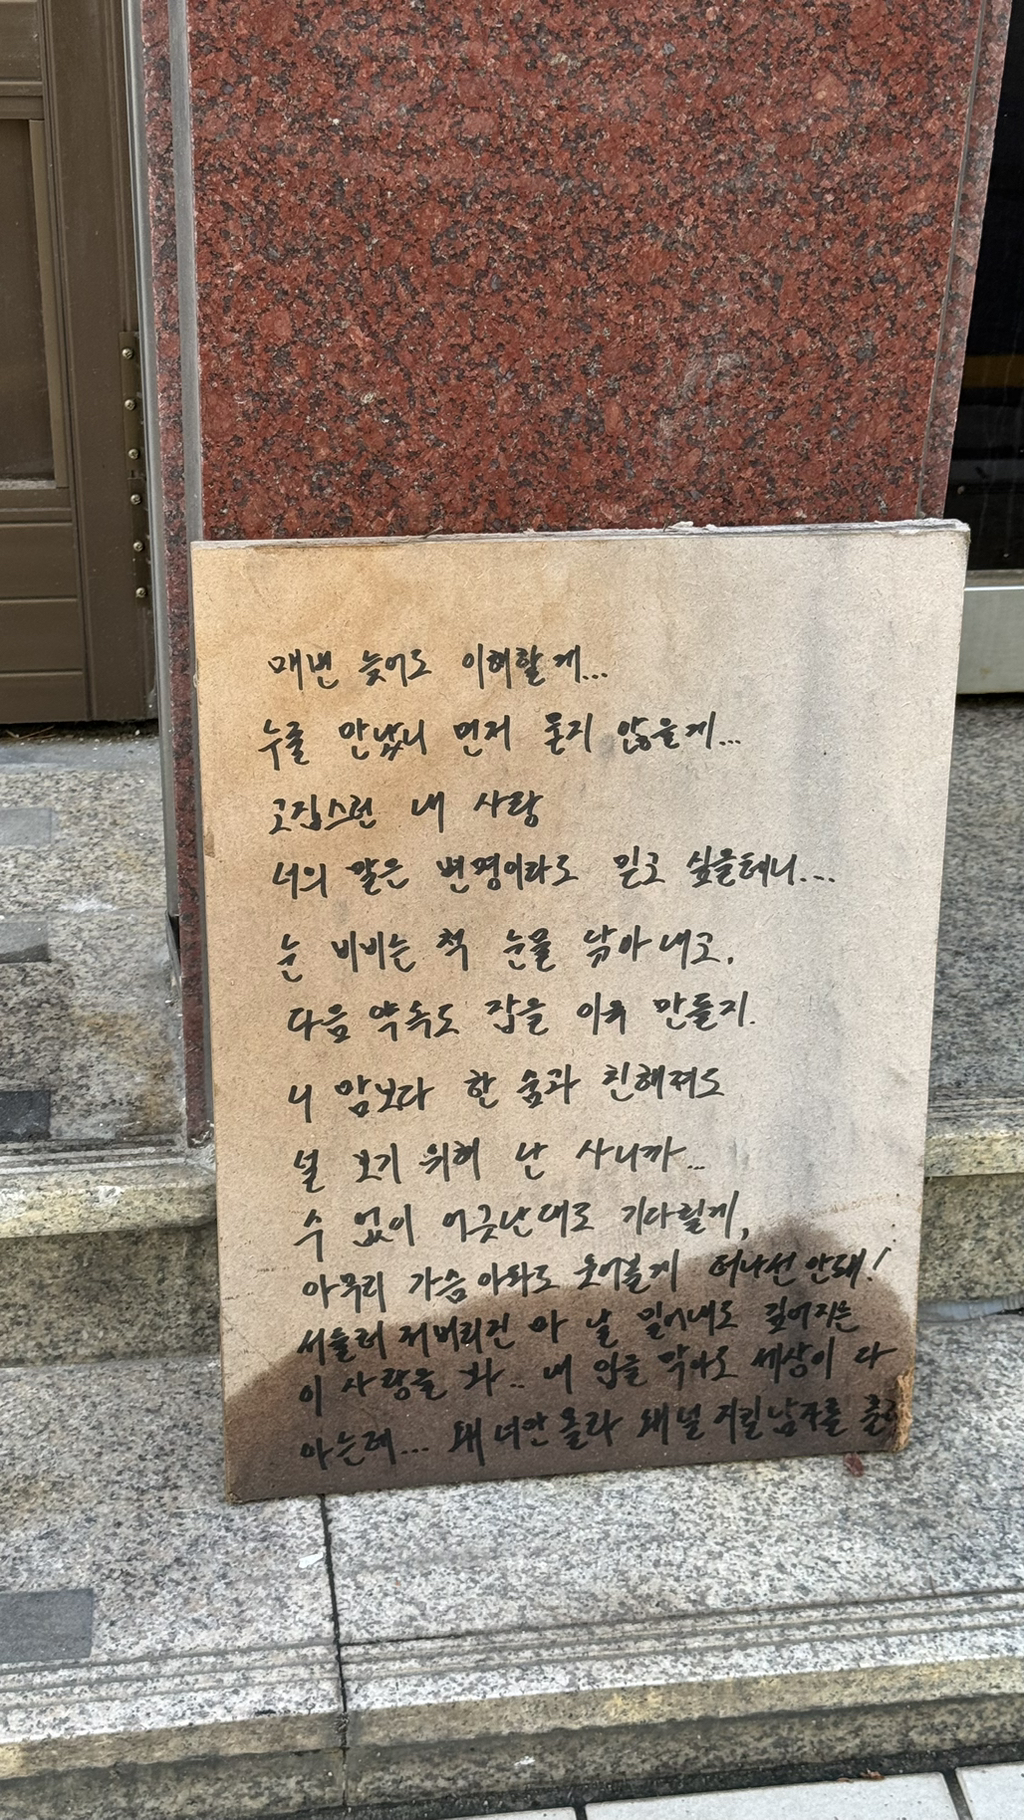 매번 늦어도 이해할게...
누굴 만났니 먼저 묻지 않을게...
고집스런 내 사랑
너의 말은 변명이라도 믿고 싶을테니....
눈 비비는 척 눈물 닦아내고,
다음 약속도 잡을 이유 만들지.
니 맘보다 한 숨과 친해져도
널 보기 위해 난 사니까...
수 없이 어긋난대로 기다릴게,
아무리 가슴 아파도 웃어볼게 떠나선 안돼!
서둘러 져버리런 마 날 밀어내도 깊어지는
이 사랑을 봐.. 내 입을 막아도 세상이 다
아는데... 왜 너만 몰라 왜 널 지킬 남자를